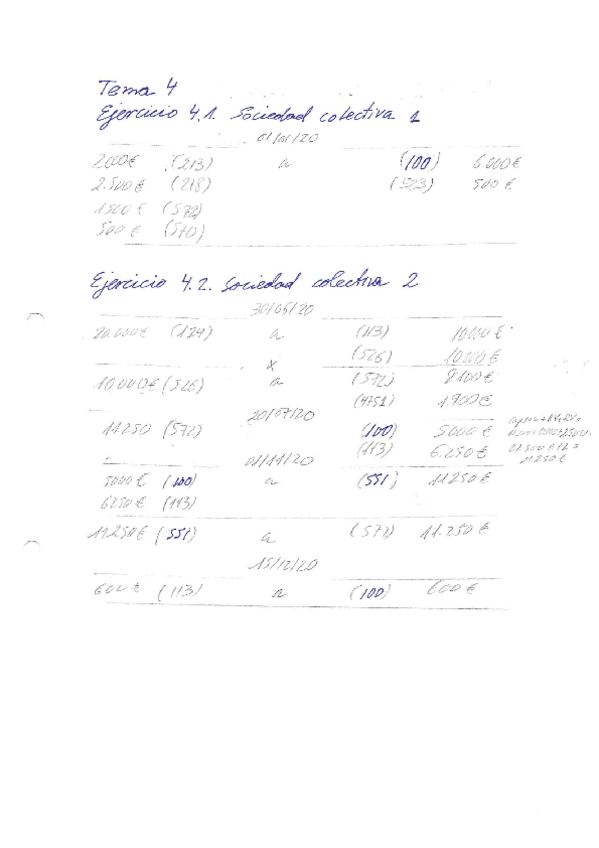 Tema 4
Ejercicio 4.1. Sociedad colectiva 1
01/01/20
2.000€ (213) a (100) 6.000€
2.500€ (218) (523) 500€
1.500€ (572)
500€ (570)
Ejercicio 4.2. Sociedad colectiva 2
30/05/20
20.000€ (129) a (113) 10.000€
(526) 10.000€
x
10.000€ (526) a (572) 8.100€
(4751) 1.900€
20/07/20
11250 (572) (100) 5000€
(113) 6.250€
22.500€/2=
11.250€
01/11/20
5000€ (100) a (551) 11.250€
6250€ (113)
11.250€ (551) a (572) 11.250€
15/12/20
600€ (113) a (100) 600€